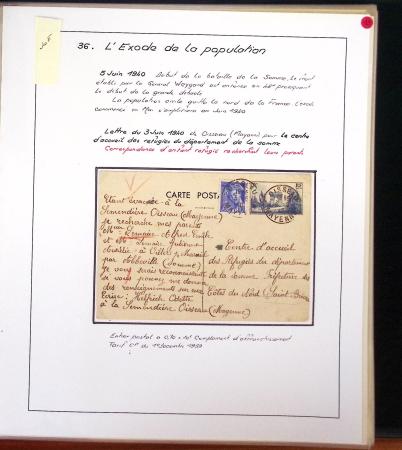 36. L'Exode de la population
5 Juin 1940 Début de la bataille de la Somme, le front
établi par le Général Weygand est enfoncé en 48h provoquant
le début de la grande débacle
La population civile quitte le nord de la France. L'exode
commencé en Mai s'amplifiera en Juin 1940
Lettre du 3 Juin 1940 de Oisseau (Mayenne) pour le centre
d'accueil des réfugiés du département de la somme
Correspondance d'enfant réfugié recherchant leurs parents
CARTE POSTALE
OISSEAU
MAYENNE
Etant évacuée à la
Semendière Oisseau (Mayenne)
je recherche mes parents
Mr Lemaire Alfred Emile
et Mme Lemaire
domicilié à Villers s/ Mareuil
par Abbeville (Somme)
je vous serais reconnaissante
si vous pouviez me donner
des renseignements sur eux
Ecrire: Helfrich Odette
à la Semendière Oisseau (Mayenne)
Centre d'accueil
des Réfugiés du département
de la Somme Préfecture des
Côtes du Nord Saint-Brieuc
Entier postal à 0,70 + 10c Complément d'affranchissement
Tarif CP du 1er décembre 1939